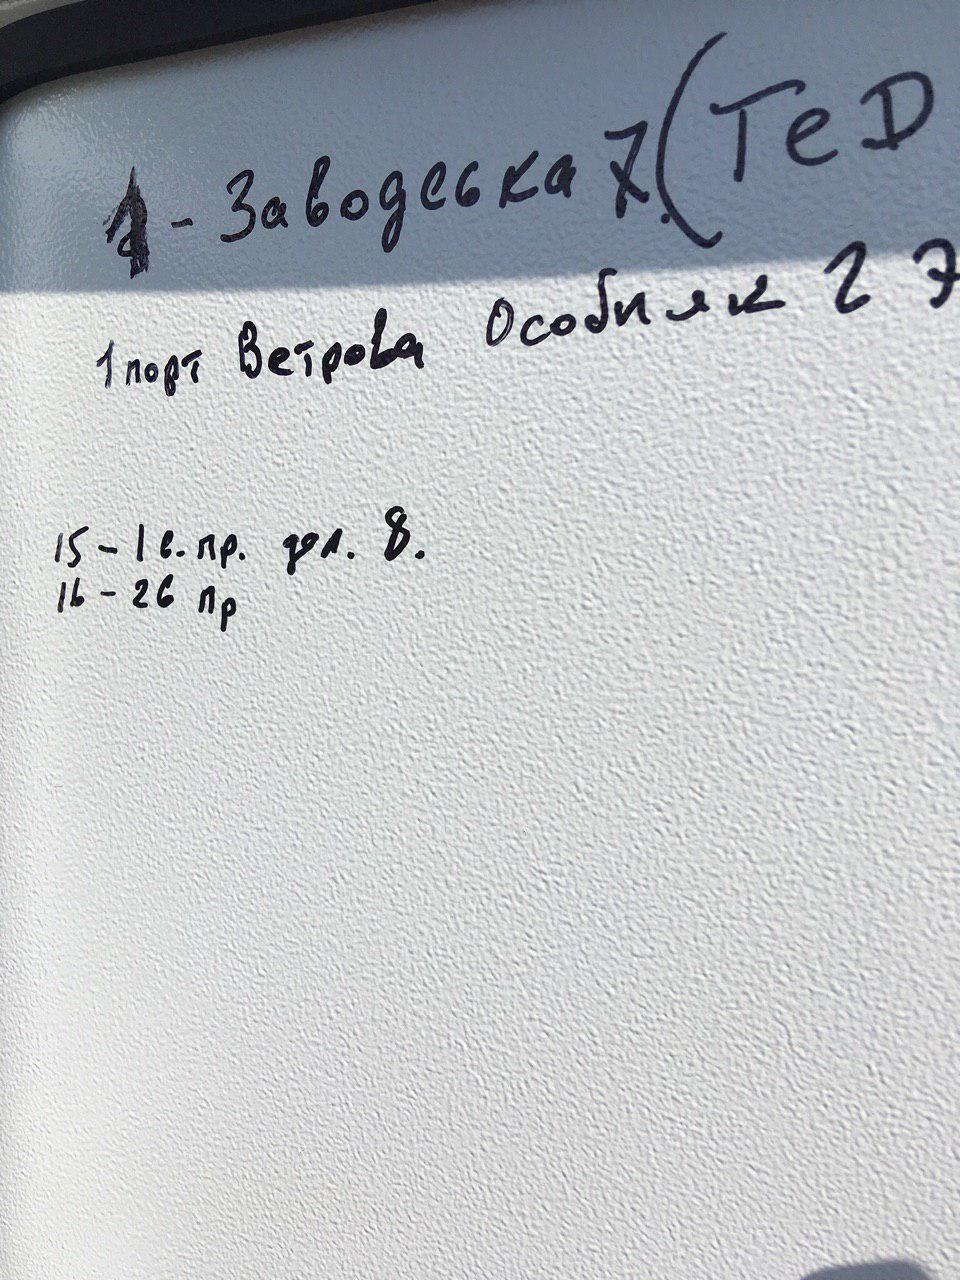 1 - Заводська 7. (ТеD
1 порт Ветрова Особняк 2 7
15 - 1 в. пр. дол. 8.
16 - 2в пр